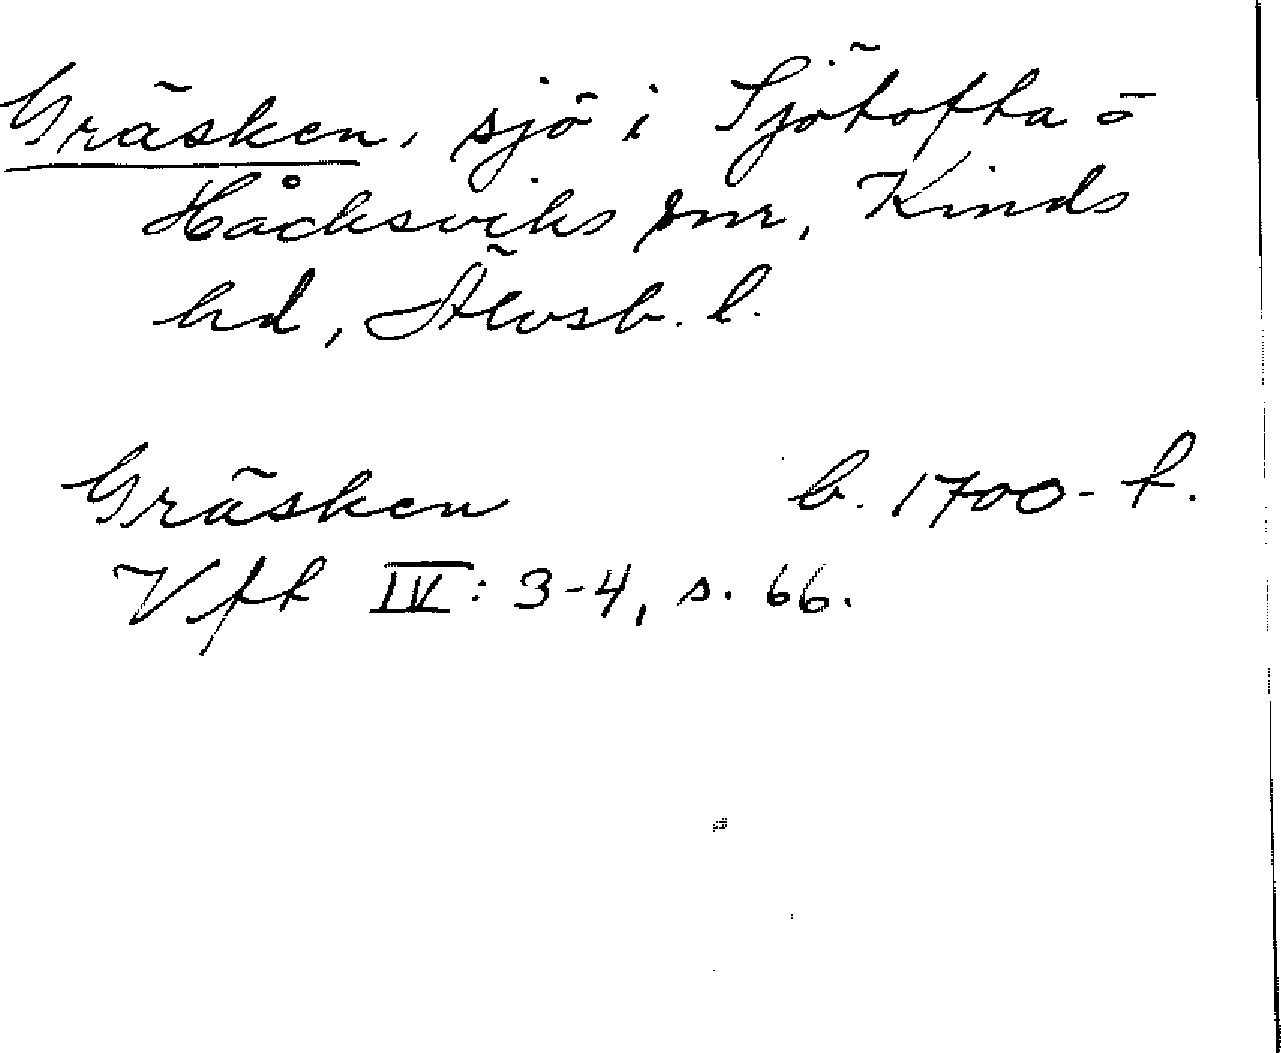 Gräsken, sjö i Sjötofta o
Håcksviks snr, Kinds
hd, Älvsb. l.
Gräsken b. 1700-t.
Vft IV: 3-4, s. 66.